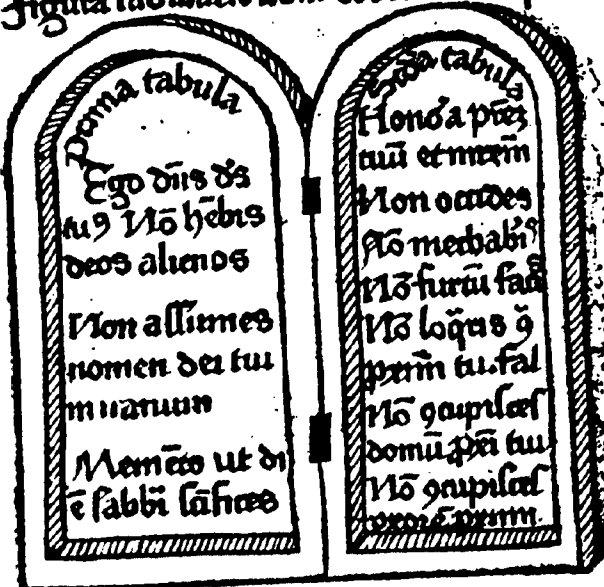 Prima tabula
Ego dn̄s ds
tuꝯ Nō hēbis
deos alienos
Non assumes
nomen dei tui
in uanum
Memēto ut di
ē sabbi sc̄ifices
Scd̄a tabula
Honoꝛa pr̄em
tuū et mr̄em
Non occides
Nō mechabis
Nō furtū facis
Nō loq̄ris ꝯ̄
pxim̄ tu. fal
Nō ꝯcupisces
domū pxi tui
Nō ꝯcupisces
uxorē pxim